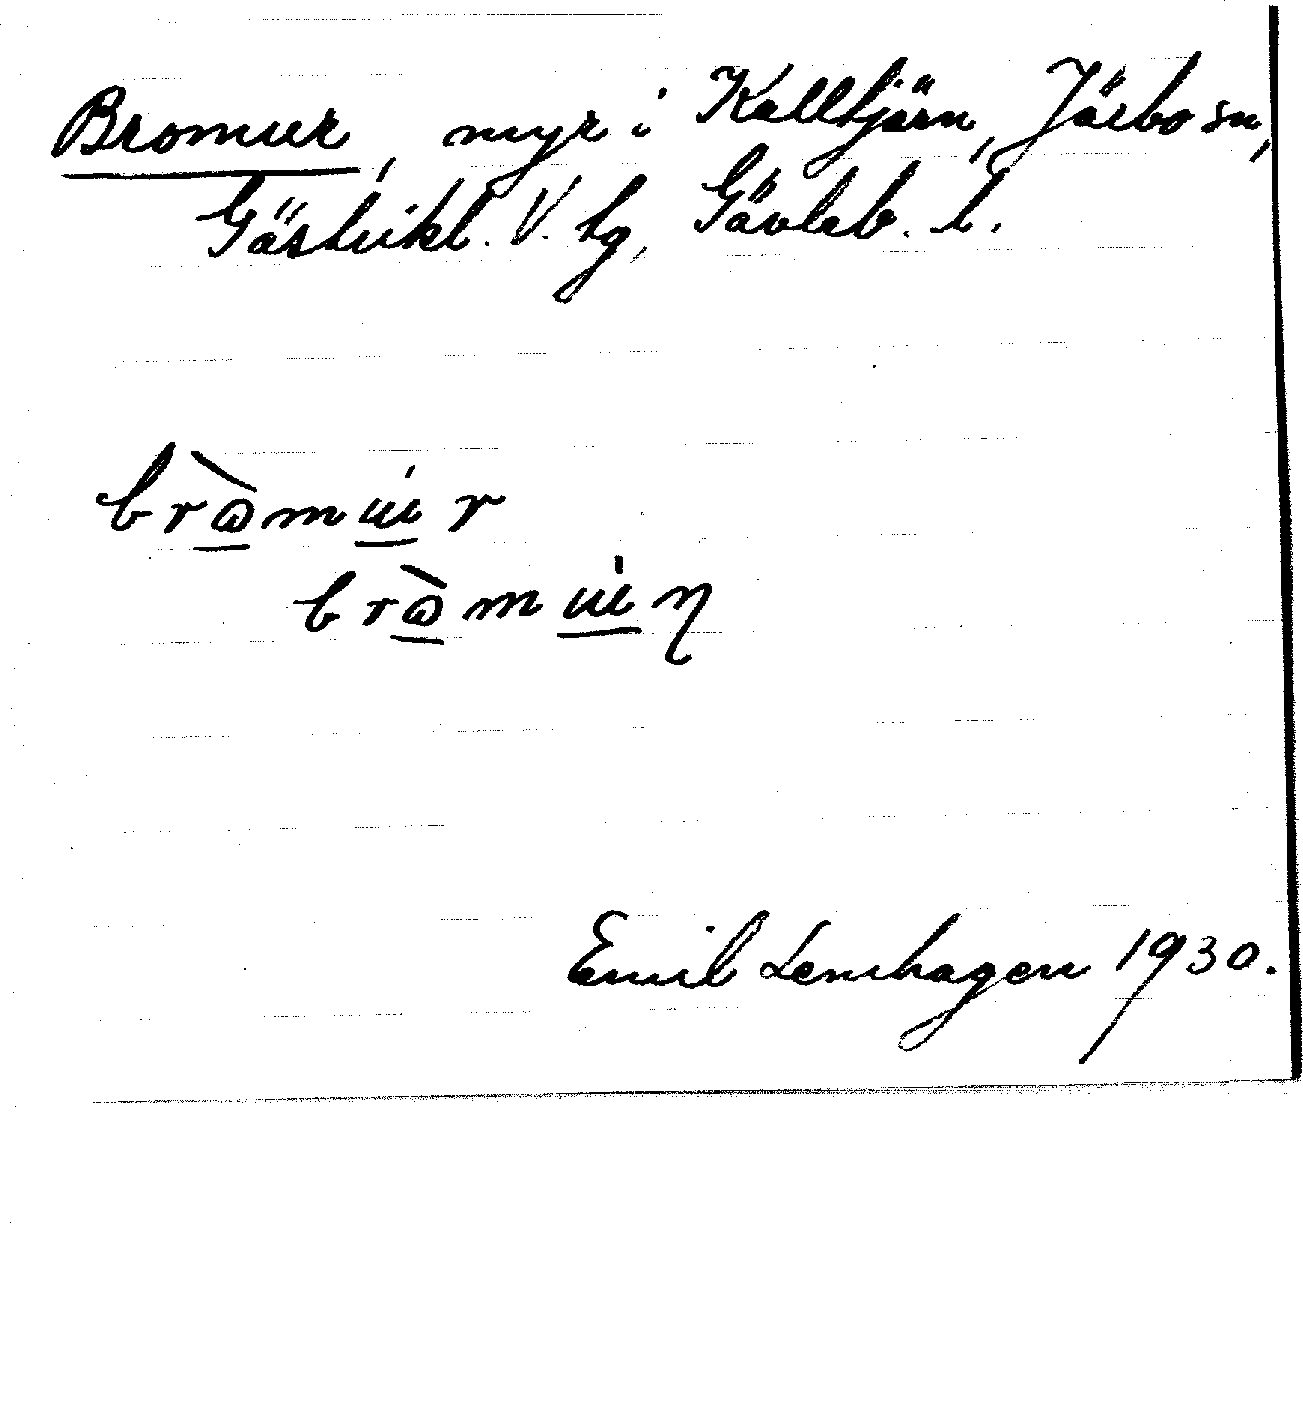 Bromur, myr i Kalltjärn, Järbo sn,
Gästrikl. V. tg, Gävleb. l.
bròmur
bròmuṇ
Emil Lenhagen 1930.